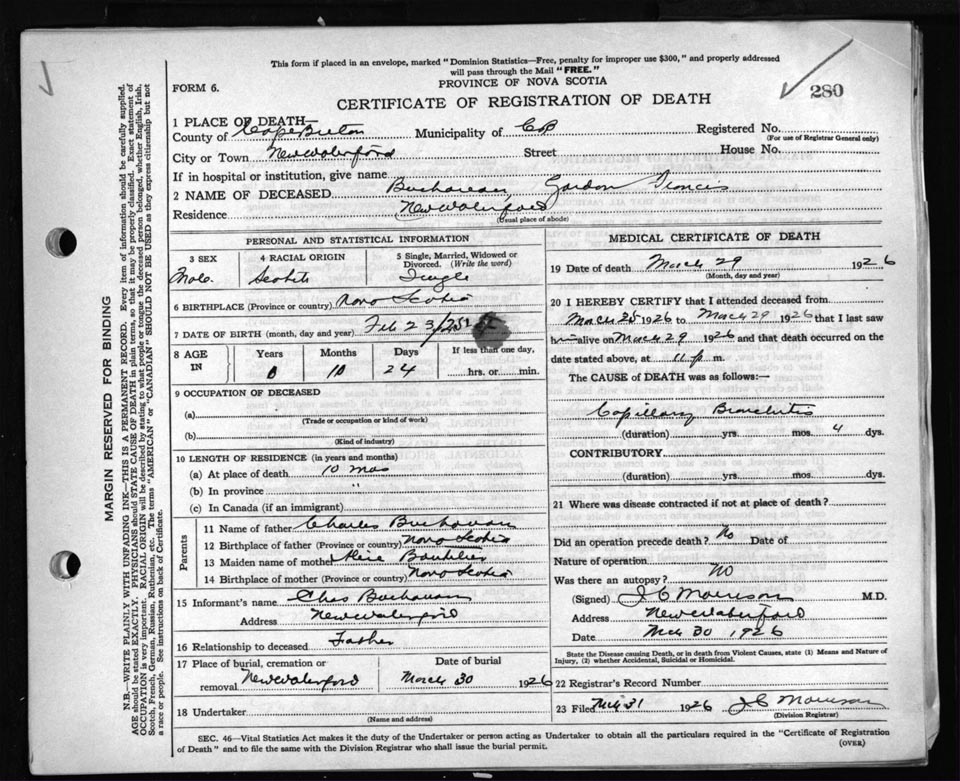 This form if placed in an envelope, marked "Dominion Statistics—Free, penalty for improper use $300," and properly addressed
will pass through the Mail "FREE."
PROVINCE OF NOVA SCOTIA
FORM 6.
CERTIFICATE OF REGISTRATION OF DEATH
280
1 PLACE OF DEATH—
County of Cape Breton Municipality of CB Registered No.
(For use of Registrar General only)
City or Town New Waterford Street House No.
If in hospital or institution, give name
2 NAME OF DECEASED Buchanan Gordon Francis
Residence New Waterford
(Usual place of abode)
PERSONAL AND STATISTICAL INFORMATION
3 SEX 4 RACIAL ORIGIN 5 Single, Married, Widowed or
Divorced. (Write the word)
Male Scotch Single
6 BIRTHPLACE (Province or country) Nova Scotia
7 DATE OF BIRTH (month, day and year) Feb 23/25
8 AGE IN Years Months Days If less than one day,
0 10 24 hrs. or min.
9 OCCUPATION OF DECEASED
(a)
(Trade or occupation or kind of work)
(b)
(Kind of industry)
10 LENGTH OF RESIDENCE (in years and months)
(a) At place of death 10 mos
(b) In province "
(c) In Canada (if an immigrant)
Parents
11 Name of father Charles Buchanan
12 Birthplace of father (Province or country) Nova Scotia
13 Maiden name of mother Boutilier
14 Birthplace of mother (Province or country) Nova Scotia
15 Informant's name Chas Buchanan
Address New Waterford
16 Relationship to deceased Father
17 Place of burial, cremation or Date of burial
removal New Waterford March 30 1926
18 Undertaker
(Name and address)
MEDICAL CERTIFICATE OF DEATH
19 Date of death March 29 1926
(Month, day and year)
20 I HEREBY CERTIFY that I attended deceased from
March 25 1926 to March 29 1926 that I last saw
h alive on March 29 1926 and that death occurred on the
date stated above, at 11 p m.
The CAUSE of DEATH was as follows:—
Capillary Bronchitis
(duration) yrs. mos. 4 dys.
CONTRIBUTORY
(duration) yrs. mos. dys.
21 Where was disease contracted if not at place of death?
Did an operation precede death? No Date of
Nature of operation
Was there an autopsy? No
(Signed) J C Morrison M.D.
Address New Waterford
Date Mch 30 1926
State the Disease causing Death, or in death from Violent Causes, state (1) Means and Nature of
Injury, (2) whether Accidental, Suicidal or Homicidal.
22 Registrar's Record Number
23 Filed Mch 31 1926 J C Morrison
(Division Registrar)
SEC. 46—Vital Statistics Act makes it the duty of the Undertaker or person acting as Undertaker to obtain all the particulars required in the "Certificate of Registration
of Death" and to file the same with the Division Registrar who shall issue the burial permit.
(OVER)
MARGIN RESERVED FOR BINDING
N.B.—WRITE PLAINLY WITH UNFADING INK—THIS IS A PERMANENT RECORD. Every item of information should be carefully supplied.
AGE should be stated EXACTLY. PHYSICIANS should STATE CAUSE OF DEATH in plain terms, so that it may be properly classified. Exact statement of
OCCUPATION is very important. RACIAL ORIGIN will be described by stating to what people or tongue the deceased person belonged, whether English, Irish,
Scotch, French, German, Russian, Ruthenian, etc. The terms "AMERICAN" or "CANADIAN" SHOULD NOT BE USED as they express citizenship but not
a race or people. See instructions on back of Certificate.